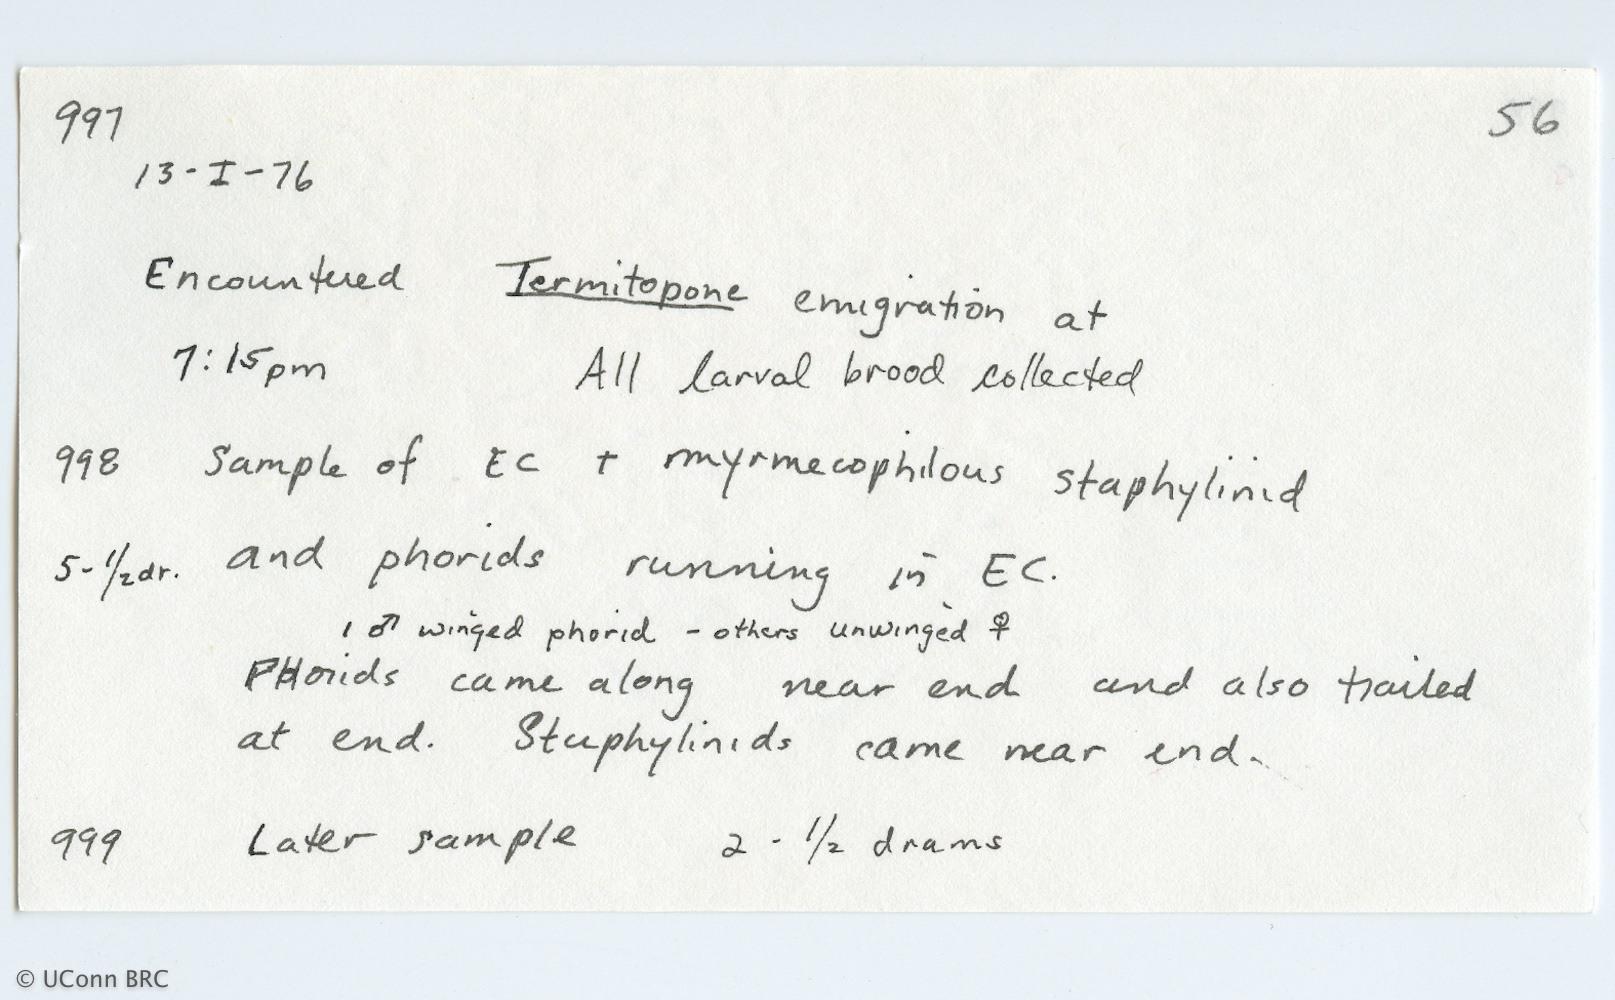 997
56
13-I-76
Encountered Termitopone emigration at
7:15pm All larval brood collected
998 Sample of EC + myrmecophilous staphylinid
5-1/2dr. and phorids running in EC.
1 ♂ winged phorid - others unwinged ♀
PHorids came along near end and also trailed
at end. Staphylinids came near end.
999 Later sample 2 - 1/2 drams
© UConn BRC